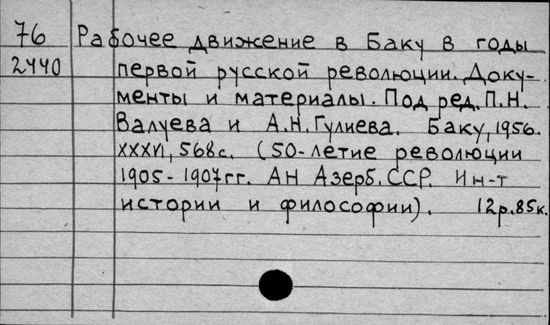 76 Рабочее движение в Баку в годы
2440 первой русской революции. Доку-
менты и материалы. Под ред. П.Н.
Валуева и А.Н. Гулиева. Баку, 1956.
XXXVI, 568с. (50-летие революции
1905-1907гг. АН Азерб. ССР. Ин-т
истории и философии). 12р.85к.